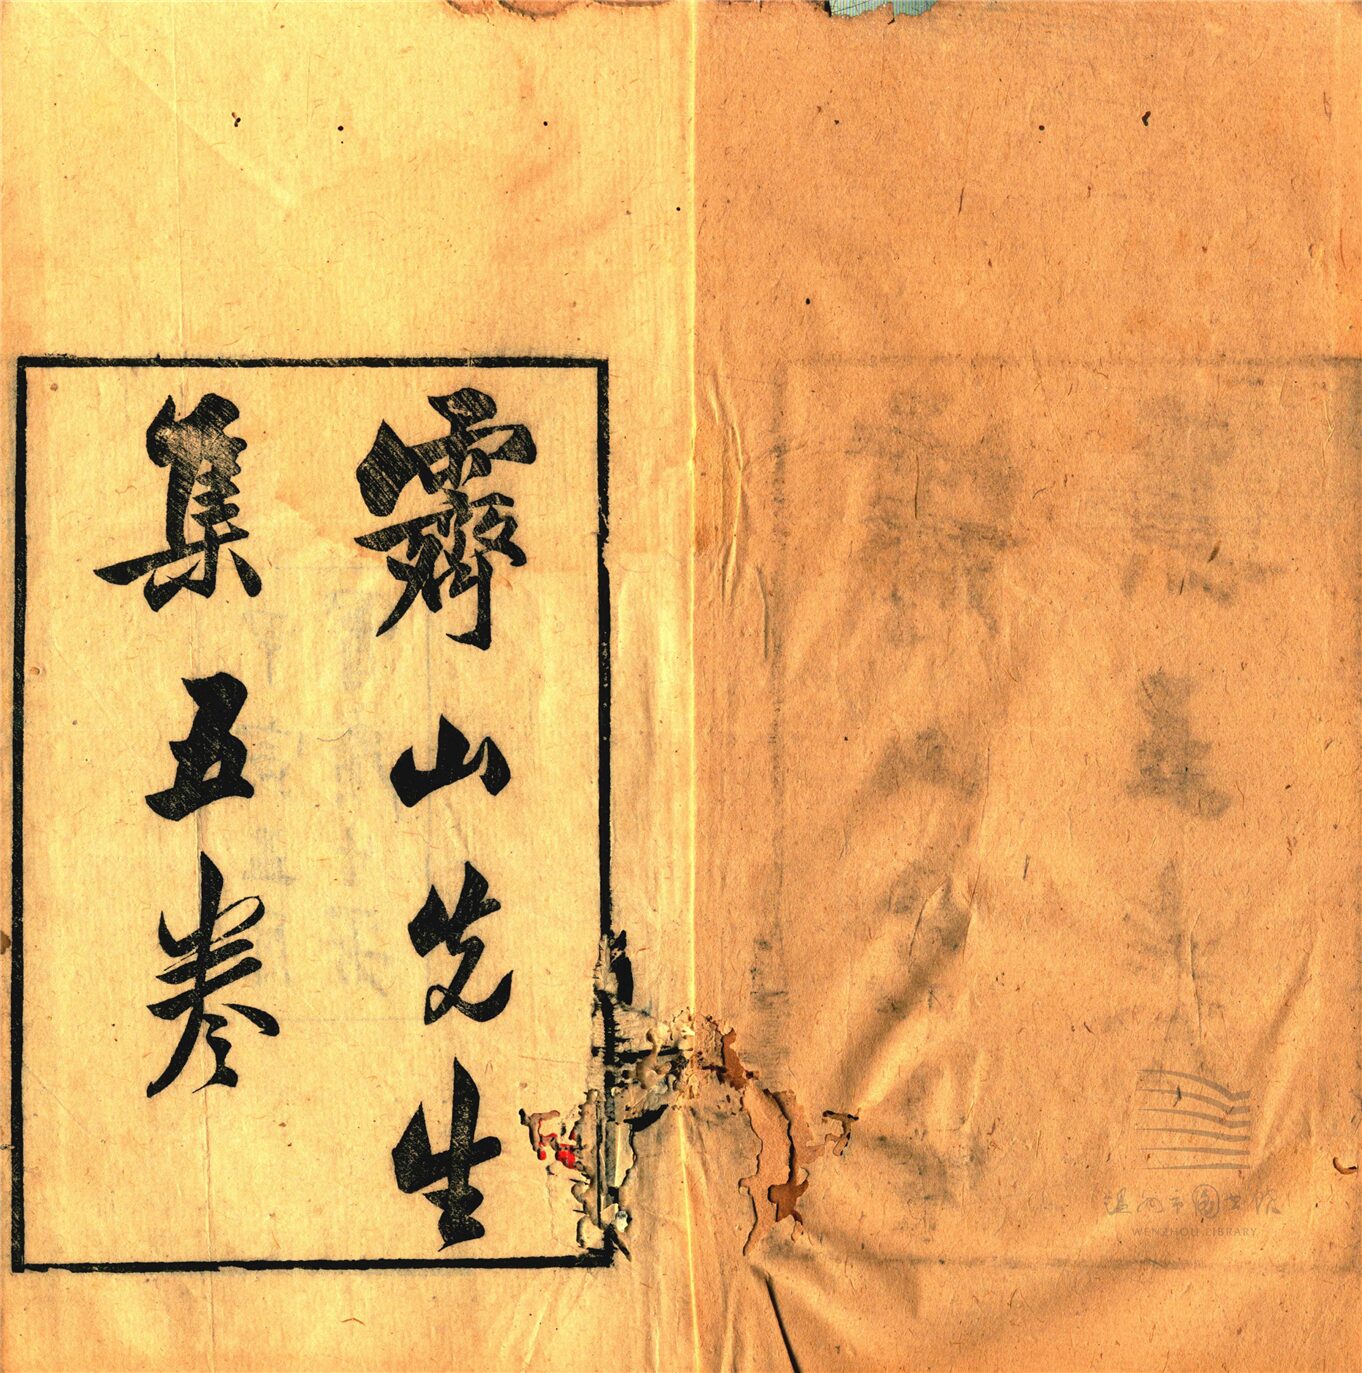 霽山先生
集五卷
溫州市圖書館
WENZHOU LIBRARY